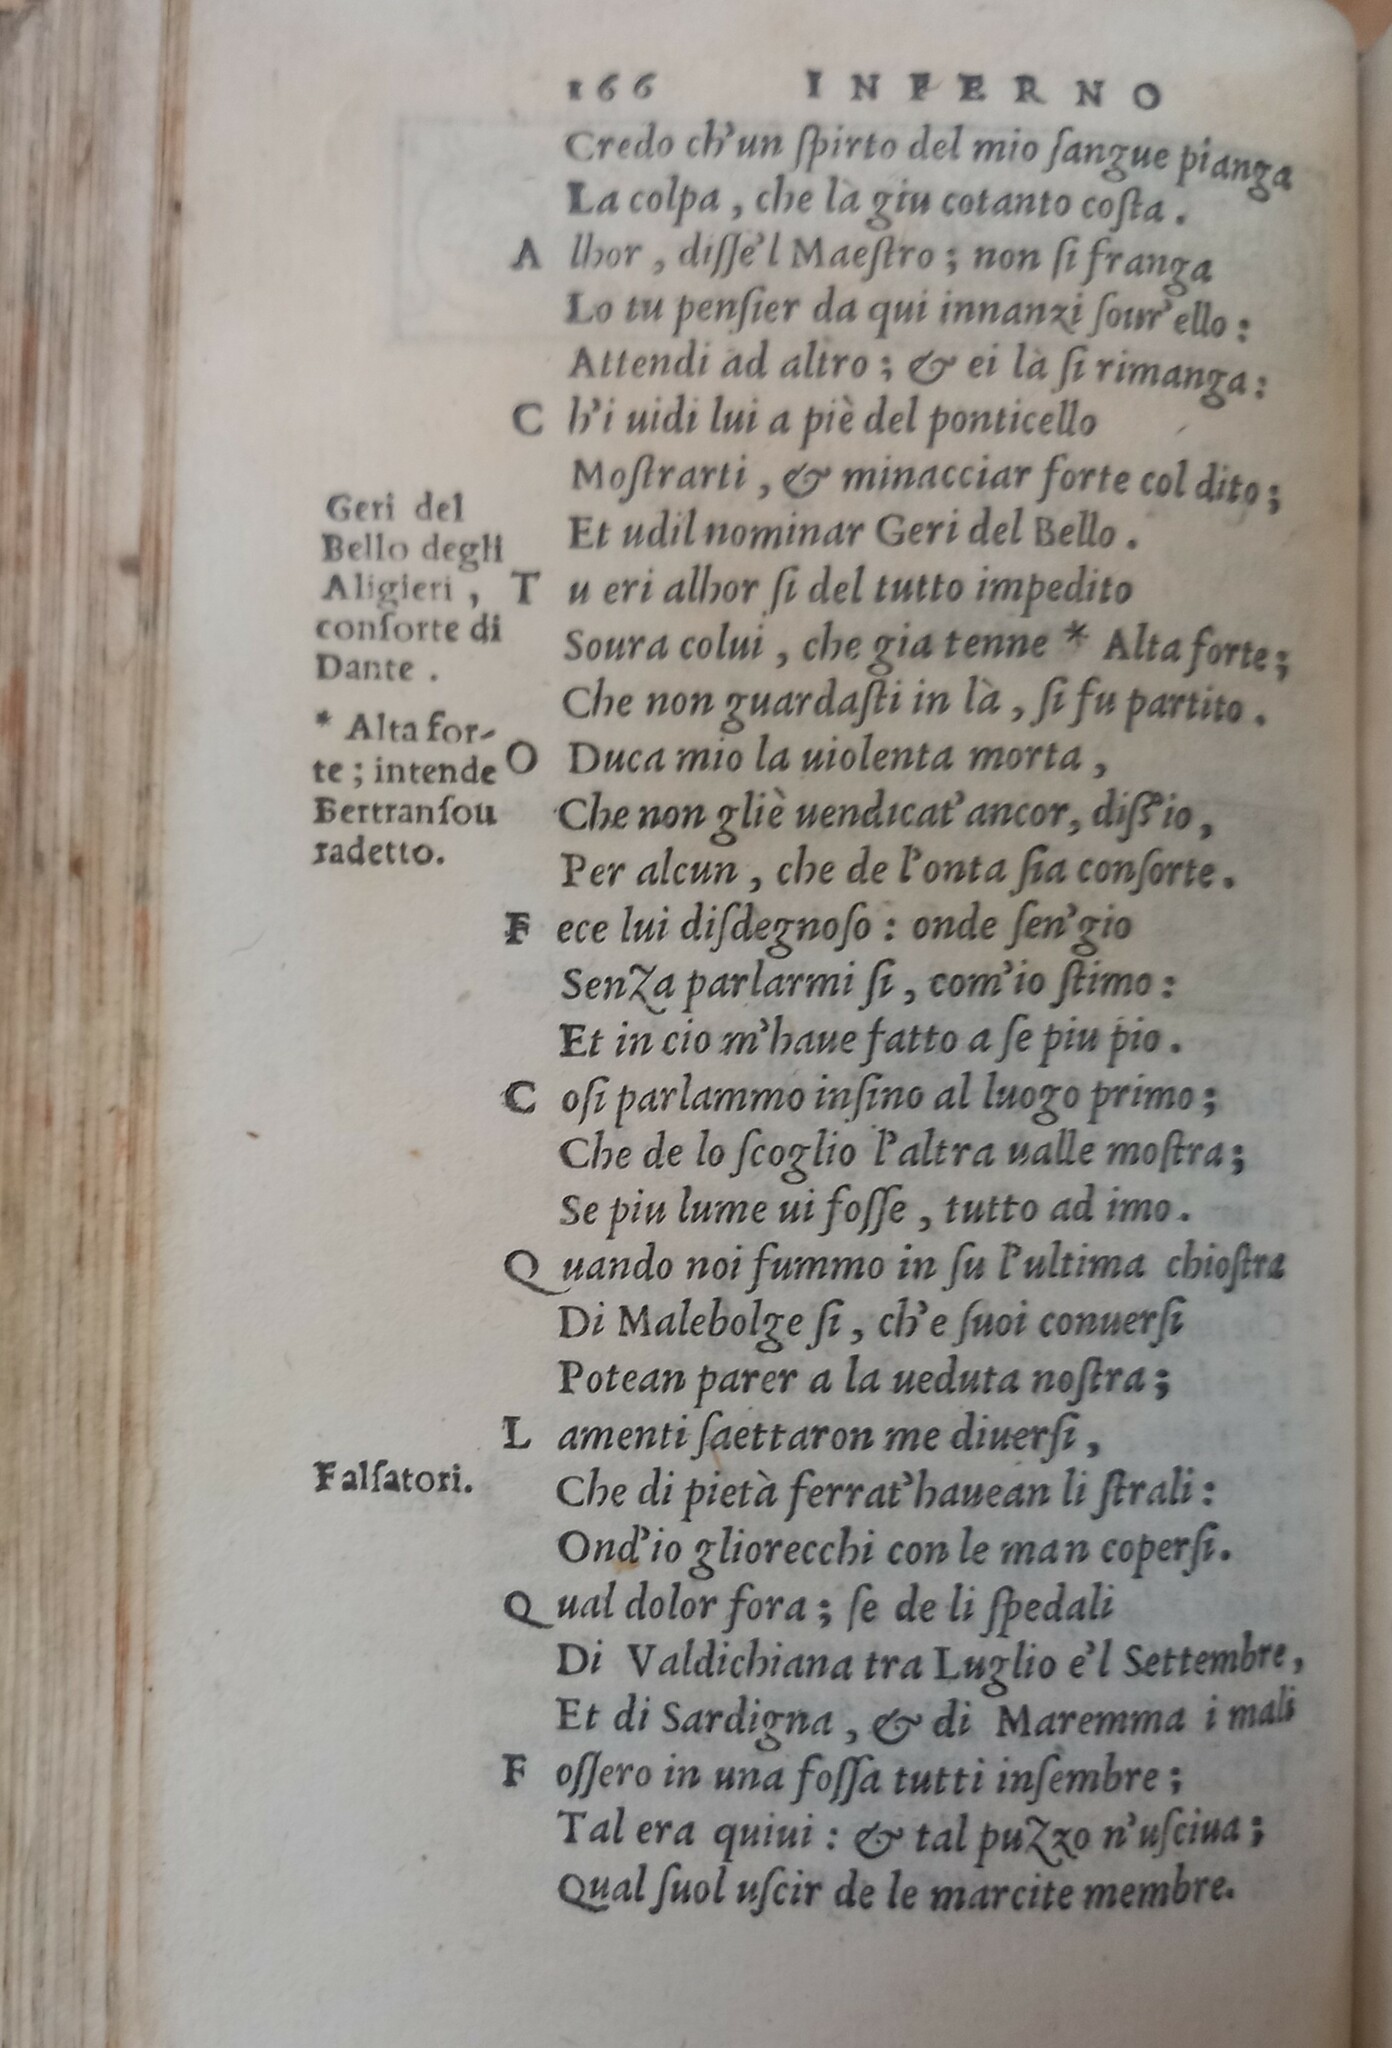 166 INFERNO
Credo ch'un ſpirto del mio ſangue pianga
La colpa, che là giu cotanto coſta.
A lhor, diſſe'l Maeſtro; non ſi franga
Lo tu penſier da qui innanzi ſour'ello:
Attendi ad altro; & ei là ſi rimanga:
C h'i uidi lui a piè del ponticello
Moſtrarti, & minacciar forte col dito;
Et udil nominar Geri del Bello.
T u eri alhor ſi del tutto impedito
Soura colui, che gia tenne * Alta forte;
Che non guardaſti in là, ſi fu partito.
O Duca mio la uiolenta morta,
Che non gliè uendicat'ancor, diſſ'io,
Per alcun, che de l'onta ſia conſorte.
F ece lui diſdegnoſo: onde ſen'gio
Senza parlarmi ſi, com'io ſtimo:
Et in cio m'haue fatto a ſe piu pio.
C oſi parlammo inſino al luogo primo;
Che de lo ſcoglio l'altra ualle moſtra;
Se piu lume ui foſſe, tutto ad imo.
Q uando noi fummo in ſu l'ultima chioſtra
Di Malebolge ſi, ch'e ſuoi conuerſi
Potean parer a la ueduta noſtra;
L amenti ſaettaron me diuerſi,
Che di pietà ferrat'hauean li ſtrali:
Ond'io gliorecchi con le man coperſi.
Q ual dolor fora; ſe de li ſpedali
Di Valdichiana tra Luglio e'l Settembre,
Et di Sardigna, & di Maremma i mali
F oſſero in una foſſa tutti inſembre;
Tal era quiui: & tal puzzo n'uſciua;
Qual ſuol uſcir de le marcite membre.
Geri del
Bello degli
Aligieri,
conſorte di
Dante.
* Alta for-
te; intende
Bertranſou
radetto.
Falſatori.